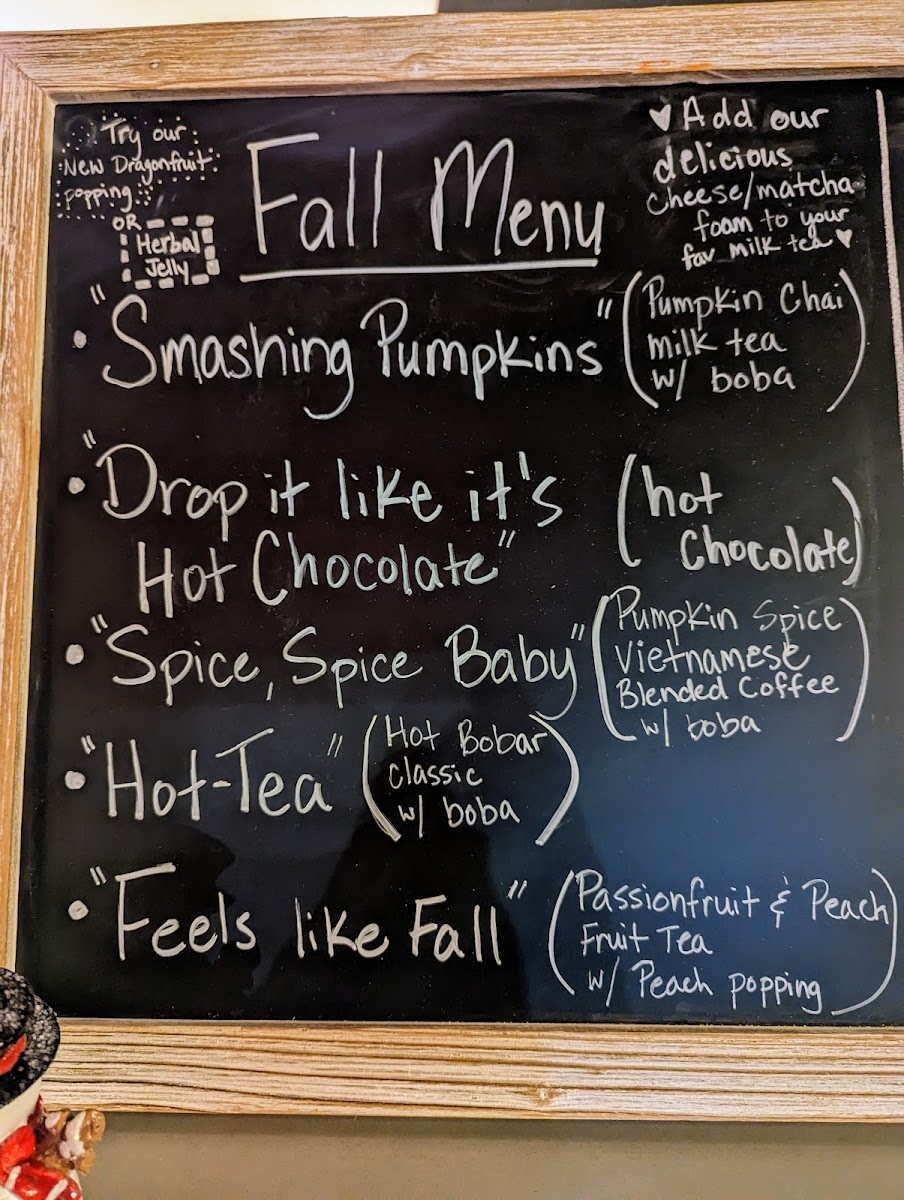 Try our
New Dragonfruit
popping
OR
Herbal
Jelly
Fall Menu
♥ Add our
delicious
cheese/matcha
foam to your
fav milk tea ♥
• "Smashing Pumpkins"
(Pumpkin Chai
milk tea
w/ boba)
• "Drop it like it's
Hot Chocolate"
(hot
Chocolate)
• "Spice, Spice Baby"
(Pumpkin Spice
Vietnamese
Blended Coffee
w/ boba)
• "Hot-Tea"
(Hot Bobar
classic
w/ boba)
• "Feels like Fall"
(Passionfruit & Peach
Fruit Tea
w/ Peach popping)